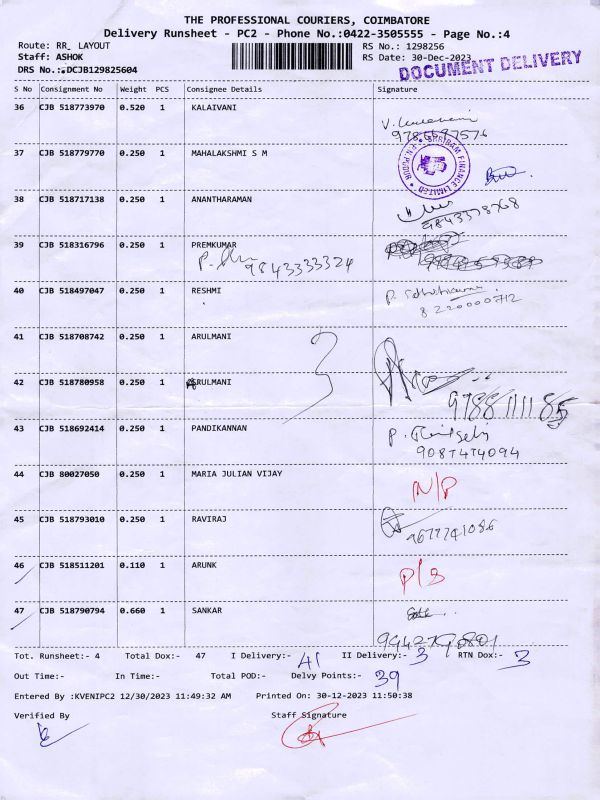 THE PROFESSIONAL COURIERS, COIMBATORE
Delivery Runsheet - PC2 - Phone No.:0422-3505555 - Page No.:4
Route: RR_ LAYOUT RS No.: 1298256
Staff: ASHOK RS Date: 30-Dec-2023
DRS No.: DCJB129825604
DOCUMENT DELIVERY
S No Consignment No Weight PCS Consignee Details Signature
36 CJB 518773970 0.520 1 KALAIVANI
37 CJB 518779770 0.250 1 MAHALAKSHMI S M
SHRIRAM FINANCE LIMITED
38 CJB 518717138 0.250 1 ANANTHARAMAN
39 CJB 518316796 0.250 1 PREMKUMAR
9843333324
40 CJB 518497047 0.250 1 RESHMI
8220000712
41 CJB 518708742 0.250 1 ARULMANI
3
42 CJB 518780958 0.250 1 ARULMANI
43 CJB 518692414 0.250 1 PANDIKANNAN
9087474094
44 CJB 80027050 0.250 1 MARIA JULIAN VIJAY N/P
45 CJB 518793010 0.250 1 RAVIRAJ
9677741086
46 CJB 518511201 0.110 1 ARUNK P/S
47 CJB 518790794 0.660 1 SANKAR
Tot. Runsheet:- 4 Total Dox:- 47 I Delivery:- 41 II Delivery:- 3 RTN Dox:- 3
Out Time:- In Time:- Total POD:- Delvy Points:- 39
Entered By :KVENIPC2 12/30/2023 11:49:32 AM Printed On: 30-12-2023 11:50:38
Verified By Staff Signature